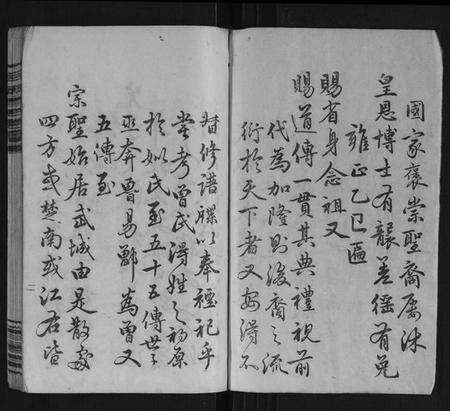 國家褒崇聖裔屡沐
皇恩博士有襲差徭有免
雍正乙巳匾
賜省身念祖又
賜道傳一貫其典禮視前
代為加隆則後裔之流
衍於天下者又安得不
替修譜牒以奉禋祀乎
嘗考曾氏得姓之初原
於姒氏至五十五傳世子
巫奔魯易鄫為曾又
五傳至
宗聖始居武城由是散處
四方或楚南或江右皆